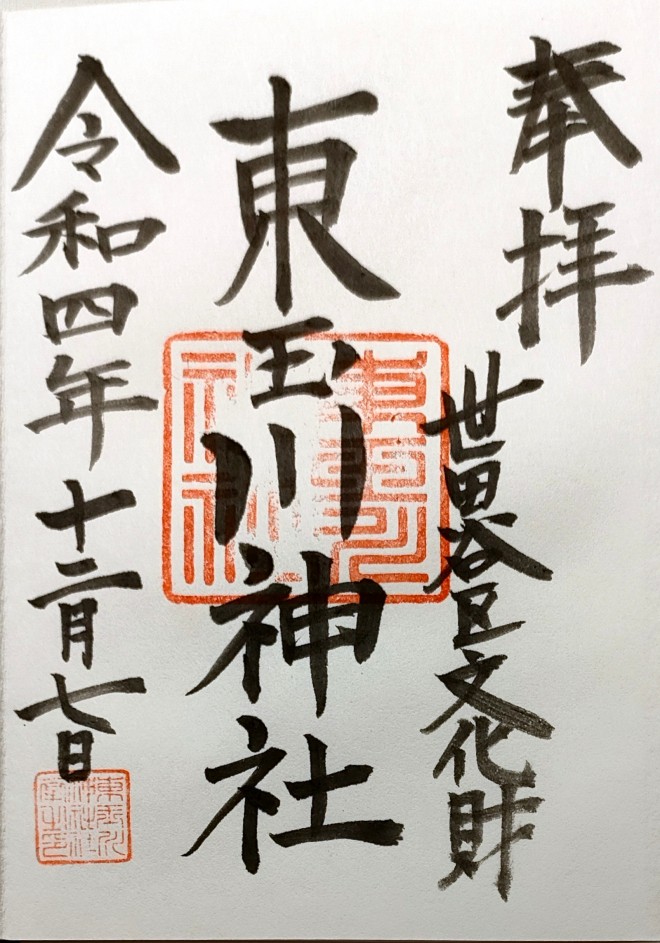 奉拝
世田谷区文化財
東玉川神社
令和四年十二月七日